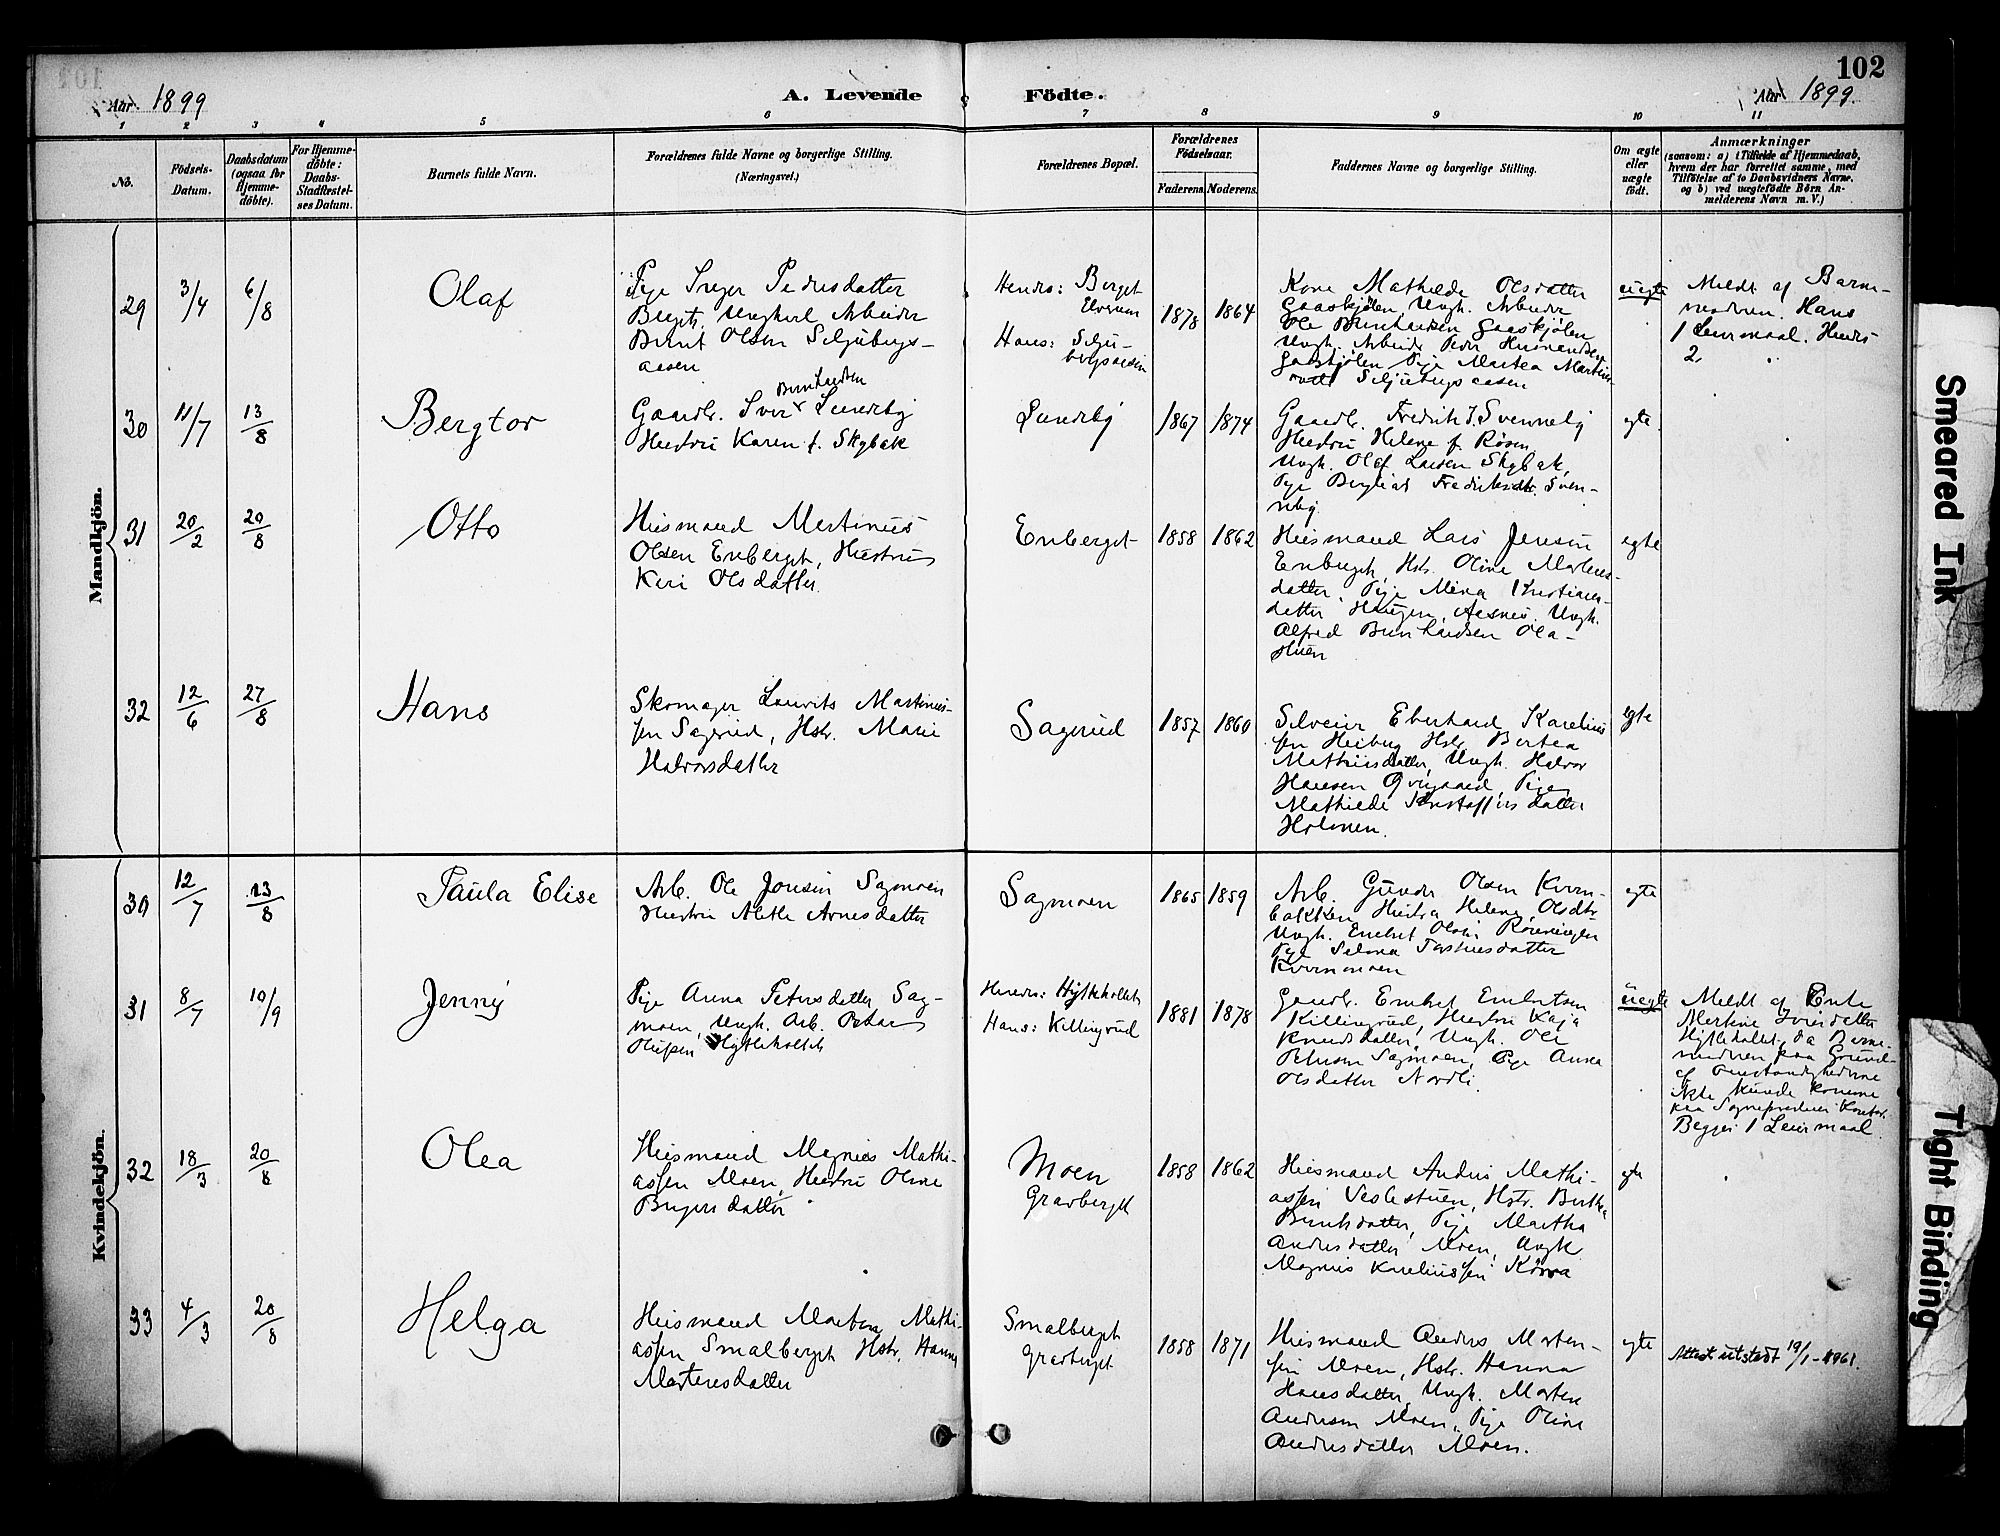 102
Aar. 1899
A. Levende
Födte.
Aar 1899.
1 2 3 4 5 6 7 8 9 10 11
No.
Födsels-
Datum.
Daabsdatum
(ogsaa for
Hjemme-
döbte).
For Hjemme-
döbte:
Daabs-
Stadfæstel-
ses Datum.
Barnets fulde Navn.
Forældrenes fulde Navne og borgerlige Stilling.
(Næringsvei.)
Forældrenes Bopæl.
Forældrenes
Födselsaar.
Faderens. Moderens.
Faddernes Navne og borgerlige Stilling.
Om ægte
eller
uægte
födt.
Anmærkninger
(saasom: a) i Tilfælde af Hjemmedaab,
hvem der har forrettet samme, med
Tilföielse af to Daabsvidners Navne,
og b) ved uægtefödte Börn An-
melderens Navn m. V.)
Mandkjön.
29
3/4
6/8
Olaf
Pige Inger Pedersdatter
Berget. Ungkarl Arbeider
Bernt Olsen Seljebergs-
aasen
Hendes: Berget
Elverum
Hans: Selje-
bergsaasen
1878
1864
Kone Mathilde Olsdatter
Gaaskjølen, Ungk. Arbeider
Ole Bernhardsen Gaaskjølen
Ungk. Arbeider Peder
Gaaskjølen Pige Martea
Seljebergsaasen
uegte
Meldt af Barne-
moderen. Hans
1 Leiermaal. Hendes
2.
30
11/7
13/8
Bergtor
Bernhardsen
Gaardbr. Iver Lundeby
Hustru Karen f. Skybak
Lundeby
1867
1874
Gaardbr. Fredrik J. Svenneby
Hustru Helene f. Røsen
Ungk. Olaf Larsen Skybak,
Pige Bergliot Fredriksdtr. Sven-
neby.
egte.
31
20/2
20/8
Otto
Husmand Martinus
Olsen Enberget, Hustru
Kari Olsdatter.
Enberget
1858
1862
Husmand Lars Jensen
Enberget, Hstr. Oline Martines-
datter, Pige Mina Kristians-
datter Haugen, Aasnes. Ungk.
Alfred Bernhardsen Ola-
stuen
egte
32
12/6
27/8
Hans
Skomager Laurits Martinus-
sen Sagerud, Hstr. Marie
Halvorsdatter
Sagerud
1857
1860
Selveier Eberhard Karelius
sen Heiberg Hstr Bertea
Mathiisdatter, Ungk. Halvor
Hansen Øvergaard, Pige
Mathilde Kristoffersdatter
Holmen.
egte
Kvindekjön.
30
12/7
13/8
Paula Elise
Arb. Ole Jonsen Sagmoen
Hustru Alette Arnesdatter
Sagmoen
1865
1859
Arb. Gunder Olsen Kvern-
bakken Hustru Helene Olsdtr
Ungk. Embret Olsen
Pige Selma
Kvernmoen
egte
31
8/7
10/9
Jenny
Pige Anna Petersdatter Sag-
moen, Ungk. Arb. Oskar
Olufsen Hytteholtet
Hendes: Hytteholtet
Hans: Killingrud
1881
1878
Gaardbr. Embret Embretsen
Killingrud, Hustru Kaja
Knudsdatter, Ungk. Ole
Petersen Sagmoen, Pige Anna
Olsdatter Nordli.
uegte
Meldt af Enke
Martine Iversdatter
Hytteholtet, da Barne-
moderen paa Grund
af Omstændighederne
ikke kunde komme
paa Sognepræstens Kontor.
Begges 1 Leiermaal.
32
18/3
20/8
Olea
Husmand Magnus Mathi-
assen Moen, Hustru Oline
Birgersdatter
Moen
Gravberget
1858
1862
Husmand Anders Mathi-
assen Veslestuen, Hstr. Berthe
Berntsdatter, Pige Martha
Andersdatter Moen, Ungk
Magnus Kareliussen
egte
33
4/3
20/8
Helga
Husmand Morten Mathi-
assen Smalberget Hstr. Hanna
Martinesdatter
Smalberget
Gravberget
1858
1871
Husmand Anders Morten-
sen Moen, Hstr. Hanna
Hansdatter, Ungk. Morten
Andersen Moen, Pige Oline
Andersdatter Moen.
egte
Attest utstedt 19/1-1961.
Smeared Ink
Tight Binding